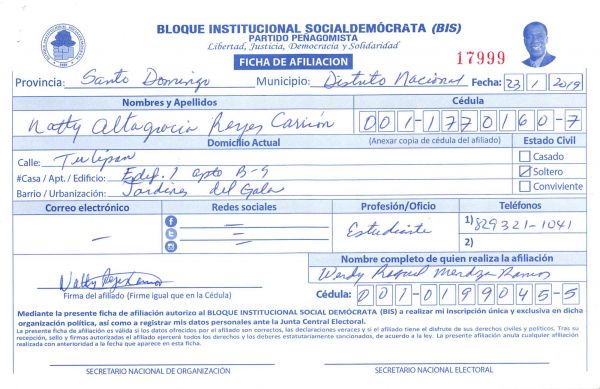 BLOQUE INSTITUCIONAL SOCIALDEMÓCRATA (BIS)
PARTIDO PEÑAGOMISTA
Libertad, Justicia, Democracia y Solidaridad
17999
FICHA DE AFILIACION
Provincia: Santo Domingo Municipio: Distrito Nacional Fecha: 23/1/2019
Nombres y Apellidos Cédula
Natty Altagracia Reyes Carrión 001-1770160-7
Domicilio Actual (Anexar copia de cédula del afiliado) Estado Civil
Calle: Tulipan Casado
#Casa / Apt. / Edificio: Edif. 1 apto B-9 Soltero
Barrio / Urbanización: Jardines del Gala Conviviente
Correo electrónico Redes sociales Profesión/Oficio Teléfonos
— — Estudiante 1) 829 321-1041
2)
Nombre completo de quien realiza la afiliación
Wendy Raquel Mendoza Ramos
Firma del afiliado (Firme igual que en la Cédula) Cédula: 001-0199045-5
Mediante la presente ficha de afiliación autorizo al BLOQUE INSTITUCIONAL SOCIAL DEMÓCRATA (BIS) a realizar mi inscripción única y exclusiva en dicha
organización política, así como a registrar mis datos personales ante la Junta Central Electoral.
La presente ficha de afiliación es válida si los datos ofrecidos por el afiliado son correctos, las declaraciones veraces y si el afiliado tiene el disfrute de sus derechos civiles y políticos. Tras su
recepción, sello y firmas autorizadas el afiliado ejercerá todos los derechos y los deberes estatutariamente sancionados, de acuerdo a la ley. La presente afiliación anula cualquier afiliación
realizada con anterioridad a la fecha que aparece en esta ficha.
SECRETARIO NACIONAL DE ORGANIZACIÓN SECRETARIO NACIONAL ELECTORAL